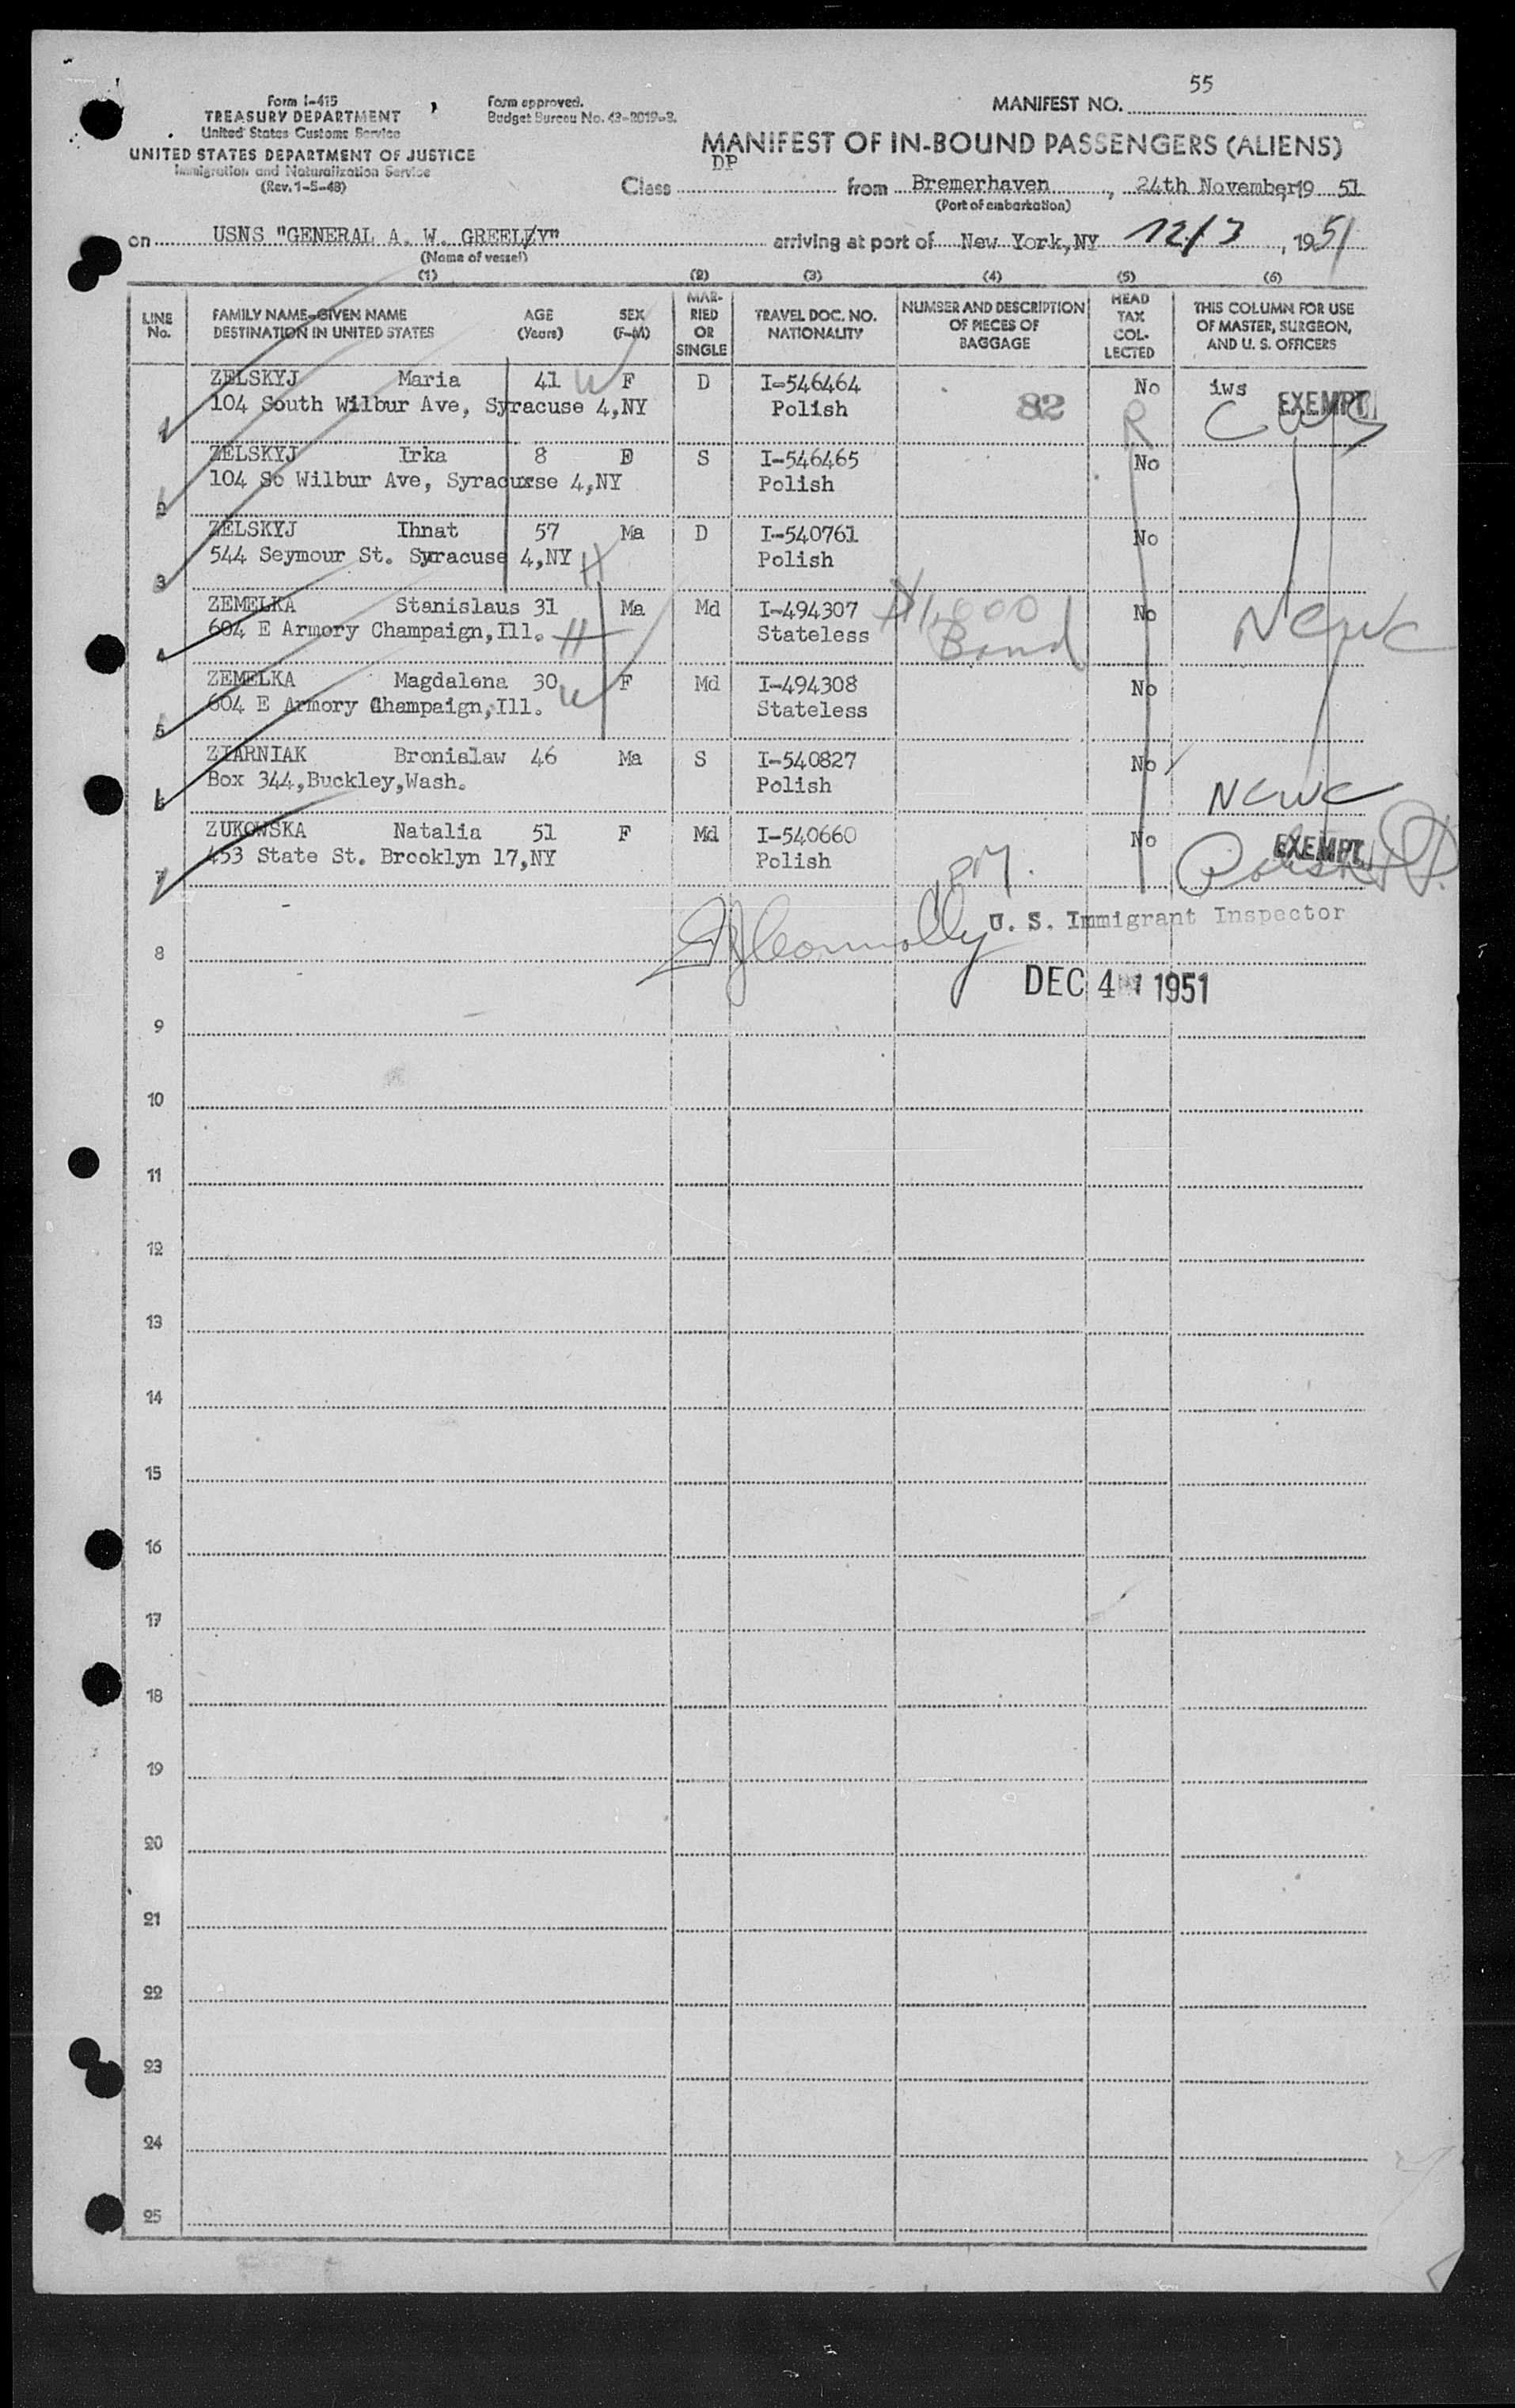 55
Form I-415
TREASURY DEPARTMENT
United States Customs Service
UNITED STATES DEPARTMENT OF JUSTICE
Immigration and Naturalization Service
(Rev. 1-5-48)
Form approved.
Budget Bureau No. 43-R019-2.
MANIFEST NO.
MANIFEST OF IN-BOUND PASSENGERS (ALIENS)
Class DP from Bremerhaven, 24th November, 19 51
(Port of embarkation)
on USNS "GENERAL A. W. GREELEY" arriving at port of New York, NY 12/3, 1951
(Name of vessel)
(1) (2) (3) (4) (5) (6)
LINE No. FAMILY NAME-GIVEN NAME DESTINATION IN UNITED STATES AGE (Years) SEX (F-M) MARRIED OR SINGLE TRAVEL DOC. NO. NATIONALITY NUMBER AND DESCRIPTION OF PIECES OF BAGGAGE HEAD TAX COLLECTED THIS COLUMN FOR USE OF MASTER, SURGEON, AND U. S. OFFICERS
1 ZELSKYJ Maria 41 W F D I-546464 No iws EXEMPT
104 South Wilbur Ave, Syracuse 4,NY Polish 82 R CWS
2 ZELSKYJ Irka 8 F S I-546465 No
104 So Wilbur Ave, Syracurse 4,NY Polish
3 ZELSKYJ Ihnat 57 Ma D I-540761 No
544 Seymour St. Syracuse 4,NY H Polish
4 ZEMELKA Stanislaus 31 Ma Md I-494307 $1,800 No NCWC
604 E Armory Champaign,Ill. H Stateless Bond
5 ZEMELKA Magdalena 30 W F Md I-494308 No
604 E Armory Champaign,Ill. Stateless
6 ZIARNIAK Bronislaw 46 Ma S I-540827 No
Box 344,Buckley,Wash. Polish NCWC
7 ZUKOWSKA Natalia 51 F Md I-540660 No EXEMPT
453 State St. Brooklyn 17,NY Polish
Connolly U. S. Immigrant Inspector
8
DEC 4 1951
9
10
11
12
13
14
15
16
17
18
19
20
21
22
23
24
25